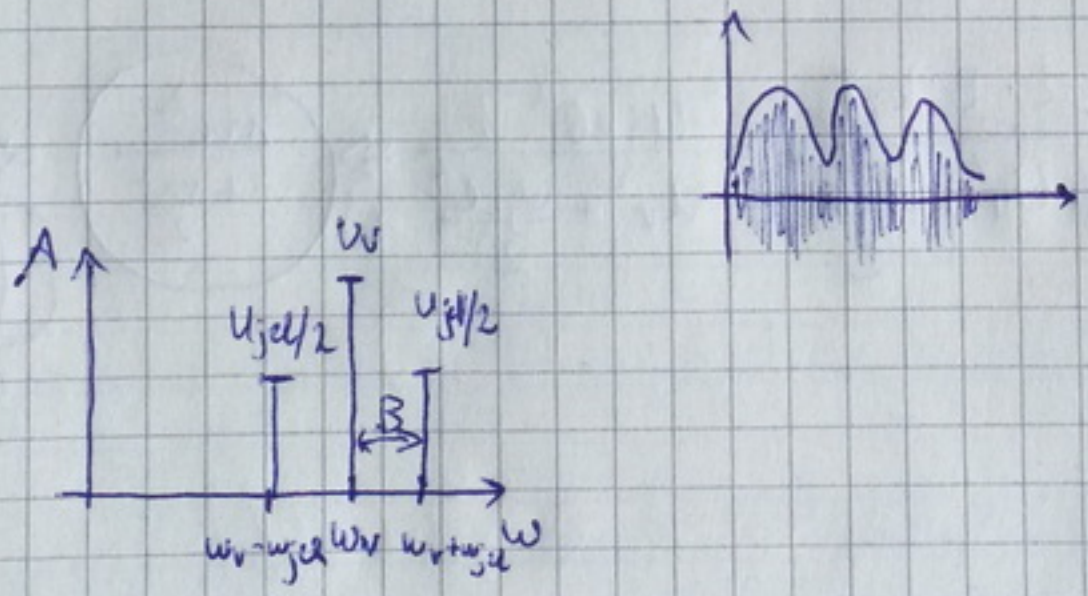 A
Uv
Ujel/2
Ujel/2
B
ωv-ωjel
ωv
ωv+ωjel
ω